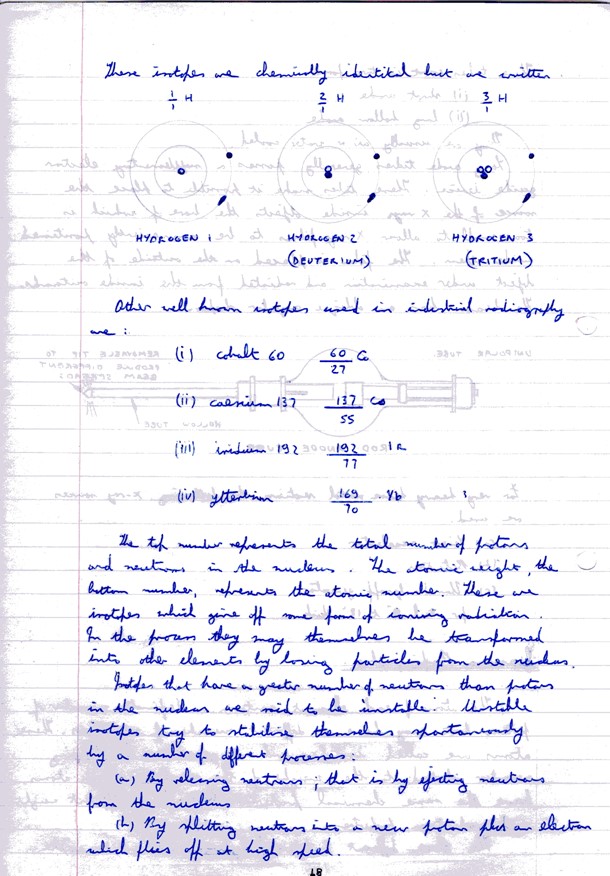 These isotopes are chemically identikal but are written
1/1 H 2/1 H 3/1 H
HYDROGEN 1 HYDROGEN 2 HYDROGEN 3
(DEUTERIUM) (TRITIUM)
Other well known isotopes used in industrial radiography
are :
(i) cobalt 60 60/27 Co
(ii) caesium 137 137/55 Cs
(iii) iridium 192 192/77 IR
(iv) ytterbium 169/70 Yb
The top number represents the total number of protons
and neutrons in the nucleus. The atomic weight, the
bottom number, represents the atomic number. These are
isotopes which give off some form of ionising radiation.
In the process they may themselves be transformed
into other elements by losing particles from the nucleus.
Isotopes that have a greater number of neutrons than protons
in the nucleus are said to be unstable. Unstable
isotopes try to stabilise themselves spontaneously
by a number of different processes:
(a) By releasing neutrons; that is by ejecting neutrons
from the nucleus
(b) By splitting neutrons into a new proton plus an electron
which flies off at high speed.